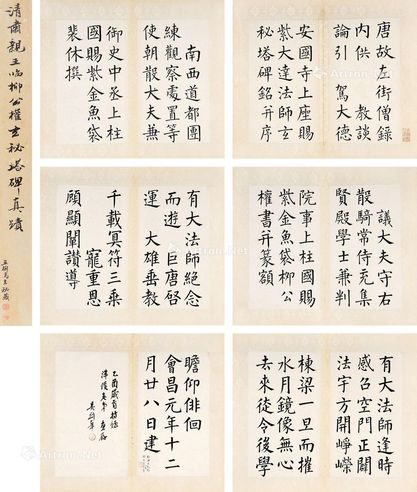 清肅親王臨柳公權玄秘塔碑真蹟
唐故左街僧錄
内供 教談
論引 駕大德
安國寺上座賜
紫大達法師玄
秘塔碑銘并序
南西道都團
練觀察處置等
使朝散大夫兼
御史中丞上柱
國賜紫金魚袋
裴休撰
議大夫守右
散騎常侍充集
賢殿學士兼判
院事上柱國賜
紫金魚袋柳公
權書并篆額
有大法師絕念
而遊 巨唐啓
運 大雄垂教
千載冥符三乘
寵重恩
顧顯闡讚導
有大法師逢時
感召空門正闢
法宇方開崢嶸
棟梁一旦而摧
水月鏡像無心
去來徒令後學
瞻仰徘徊
會昌元年十二
月廿八日建
乙酉歲